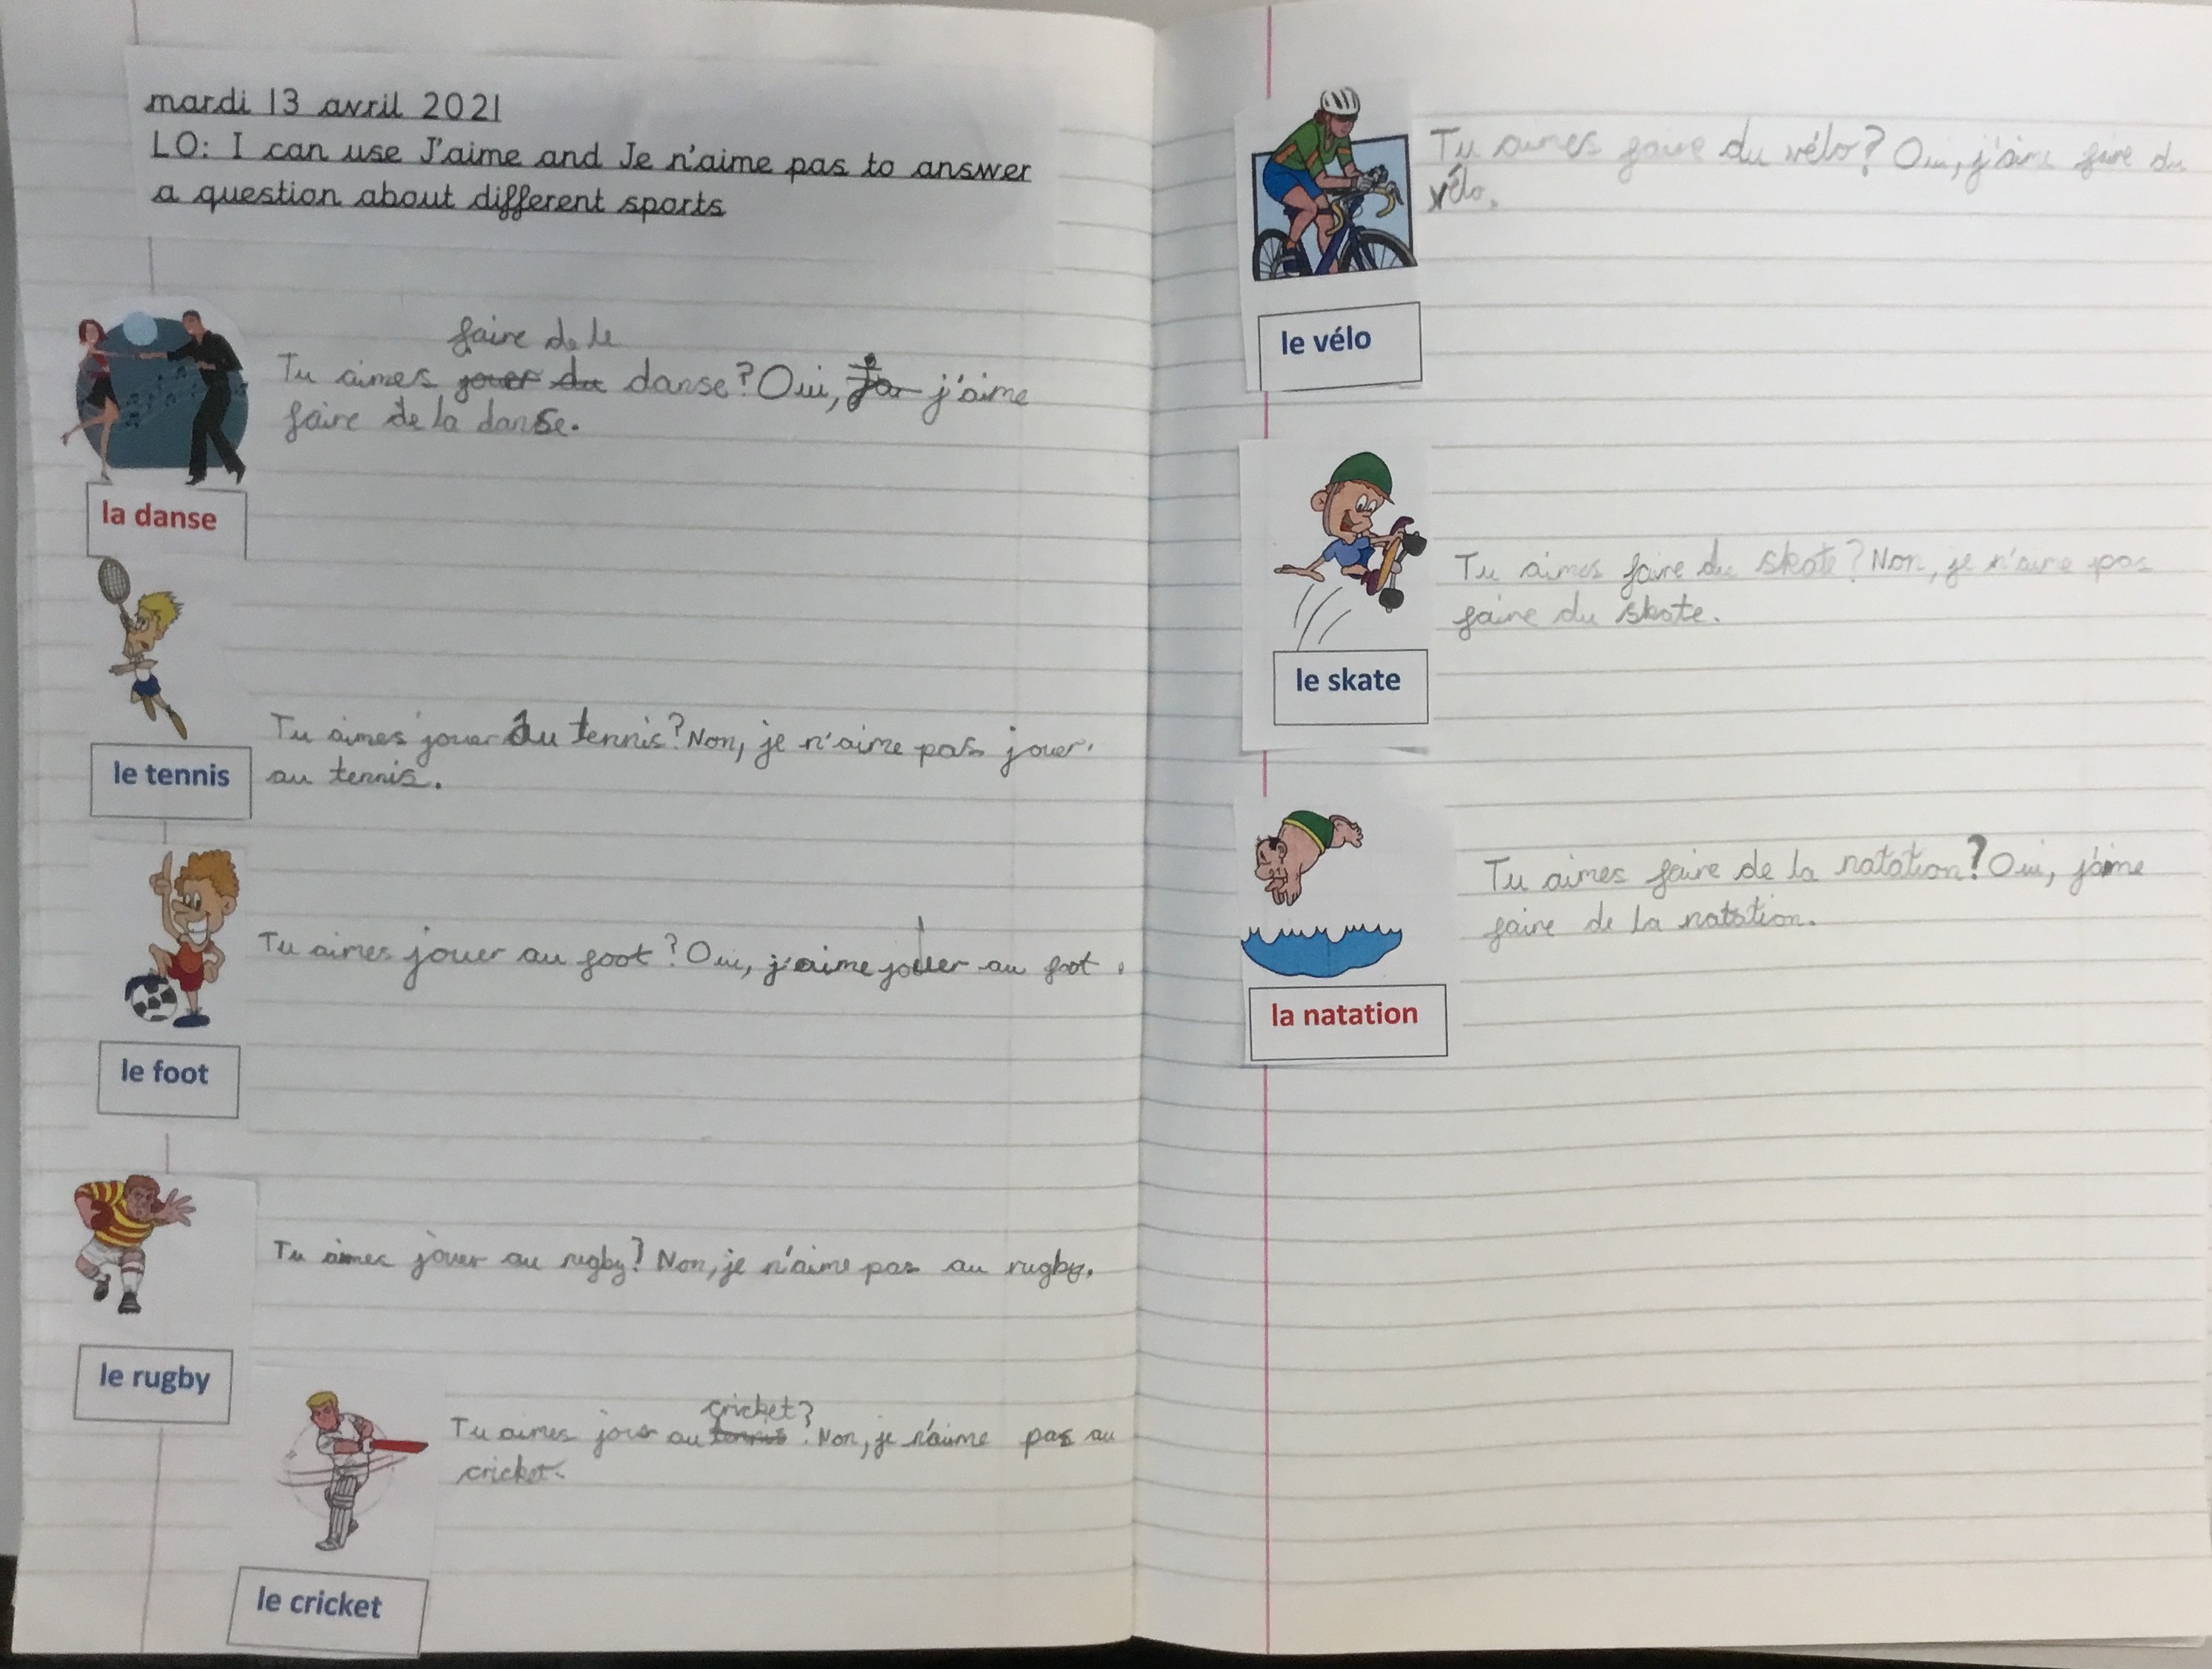 mardi 13 avril 2021
LO: I can use J'aime and Je n'aime pas to answer
a question about different sports
faire de le
Tu aimes jouer du danse? Oui, j'aime
faire de la danse.
la danse
Tu aimes jouer au tennis? Non, je n'aime pas jouer
au tennis.
le tennis
Tu aimes jouer au foot? Oui, j'aime jouer au foot.
le foot
Tu aimes jouer au rugby? Non, je n'aime pas au rugby.
le rugby
cricket?
Tu aimes au tennis. Non, je n'aime pas au
cricket.
le cricket
Tu aimes faire du vélo? Oui, j'aime faire du
vélo.
le vélo
Tu aimes faire du skate? Non, je n'aime pas
faire du skate.
le skate
Tu aimes faire de la natation? Oui, j'aime
faire de la natation.
la natation